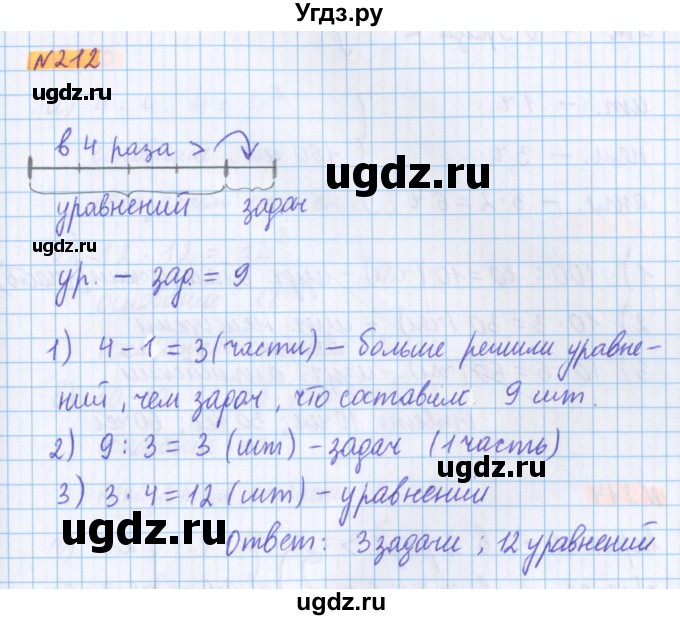 Угдз.ру
№212
ugdz.ru
в 4 раза >
ugdz.ru
уравнений задач
ugdz.ru
ур. - зад. = 9
1) 4 - 1 = 3 (части) - больше решили уравне-
ний, чем задач, что составил. 9 шт.
2) 9 : 3 = 3 (шт) - задач (1 часть)
3) 3 · 4 = 12 (шт) - уравнений
ugdz.ru
ugdz.ru
Ответ: 3 задачи ; 12 уравнений
ugdz.ru